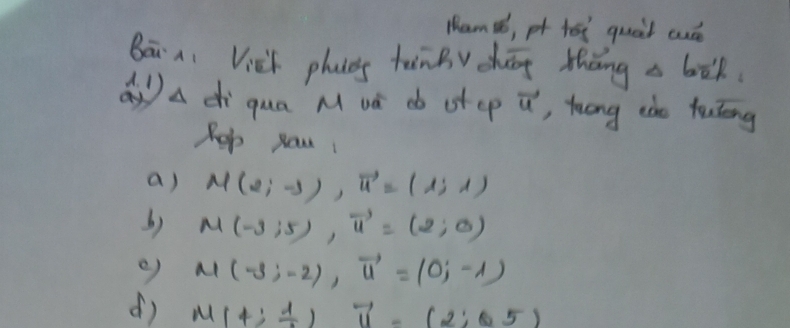 tham số, pt tổng quát của
Bài 1: Viết phương trình V đường thẳng Δ biết:
1.1) Δ đi qua M và có vtcp u⃗, trong các trường
hợp sau:
a) M(2; -3), u⃗ = (1; 1)
b) M(-3; 5), u⃗ = (2; 0)
c) M(-3; -2), u⃗ = (0; -1)
d) M( ; 1 ) u⃗ = (2; 5)